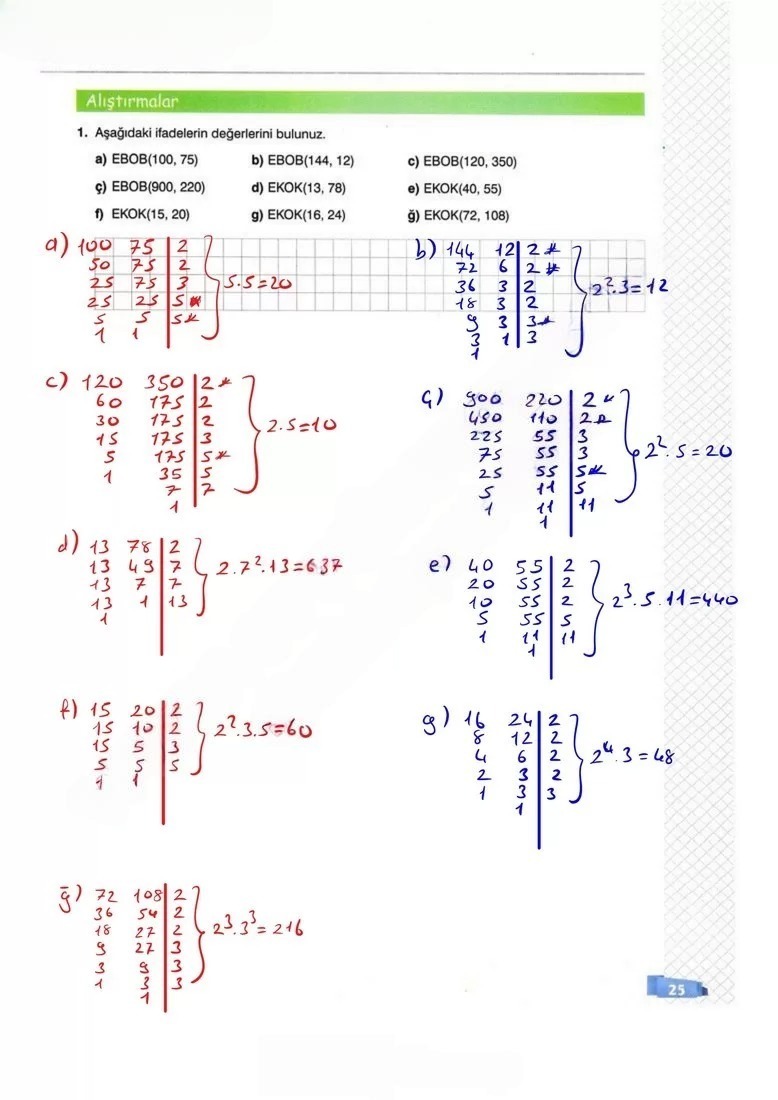 Alıştırmalar
1. Aşağıdaki ifadelerin değerlerini bulunuz.
a) EBOB(100, 75) b) EBOB(144, 12) c) EBOB(120, 350)
ç) EBOB(900, 220) d) EKOK(13, 78) e) EKOK(40, 55)
f) EKOK(15, 20) g) EKOK(16, 24) ğ) EKOK(72, 108)
a) 100 75 | 2
50 75 | 2
25 75 | 3 5.5=20
25 25 | 5*
5 5 | 5*
1 1
b) 144 12 | 2*
72 6 | 2*
36 3 | 2 2².3=12
18 3 | 2
9 3 | 3*
3 1 | 3
1
c) 120 350 | 2*
60 175 | 2
30 175 | 2 2.5=10
15 175 | 3
5 175 | 5*
1 35 | 5
7 | 7
1
ç) 900 220 | 2*
450 110 | 2*
225 55 | 3
75 55 | 3 2².5=20
25 55 | 5*
5 11 | 5
1 11 | 11
1
d) 13 78 | 2
13 49 | 7 2.7².13=637
13 7 | 7
13 1 | 13
1
e) 40 55 | 2
20 55 | 2
10 55 | 2 2³.5.11=440
5 55 | 5
1 11 | 11
1
f) 15 20 | 2
15 10 | 2 2².3.5=60
15 5 | 3
5 5 | 5
1 1
g) 16 24 | 2
8 12 | 2
4 6 | 2 2⁴.3=48
2 3 | 2
1 3 | 3
1
ğ) 72 108 | 2
36 54 | 2
18 27 | 2 2³.3³=216
9 27 | 3
3 9 | 3
1 3 | 3
1
25